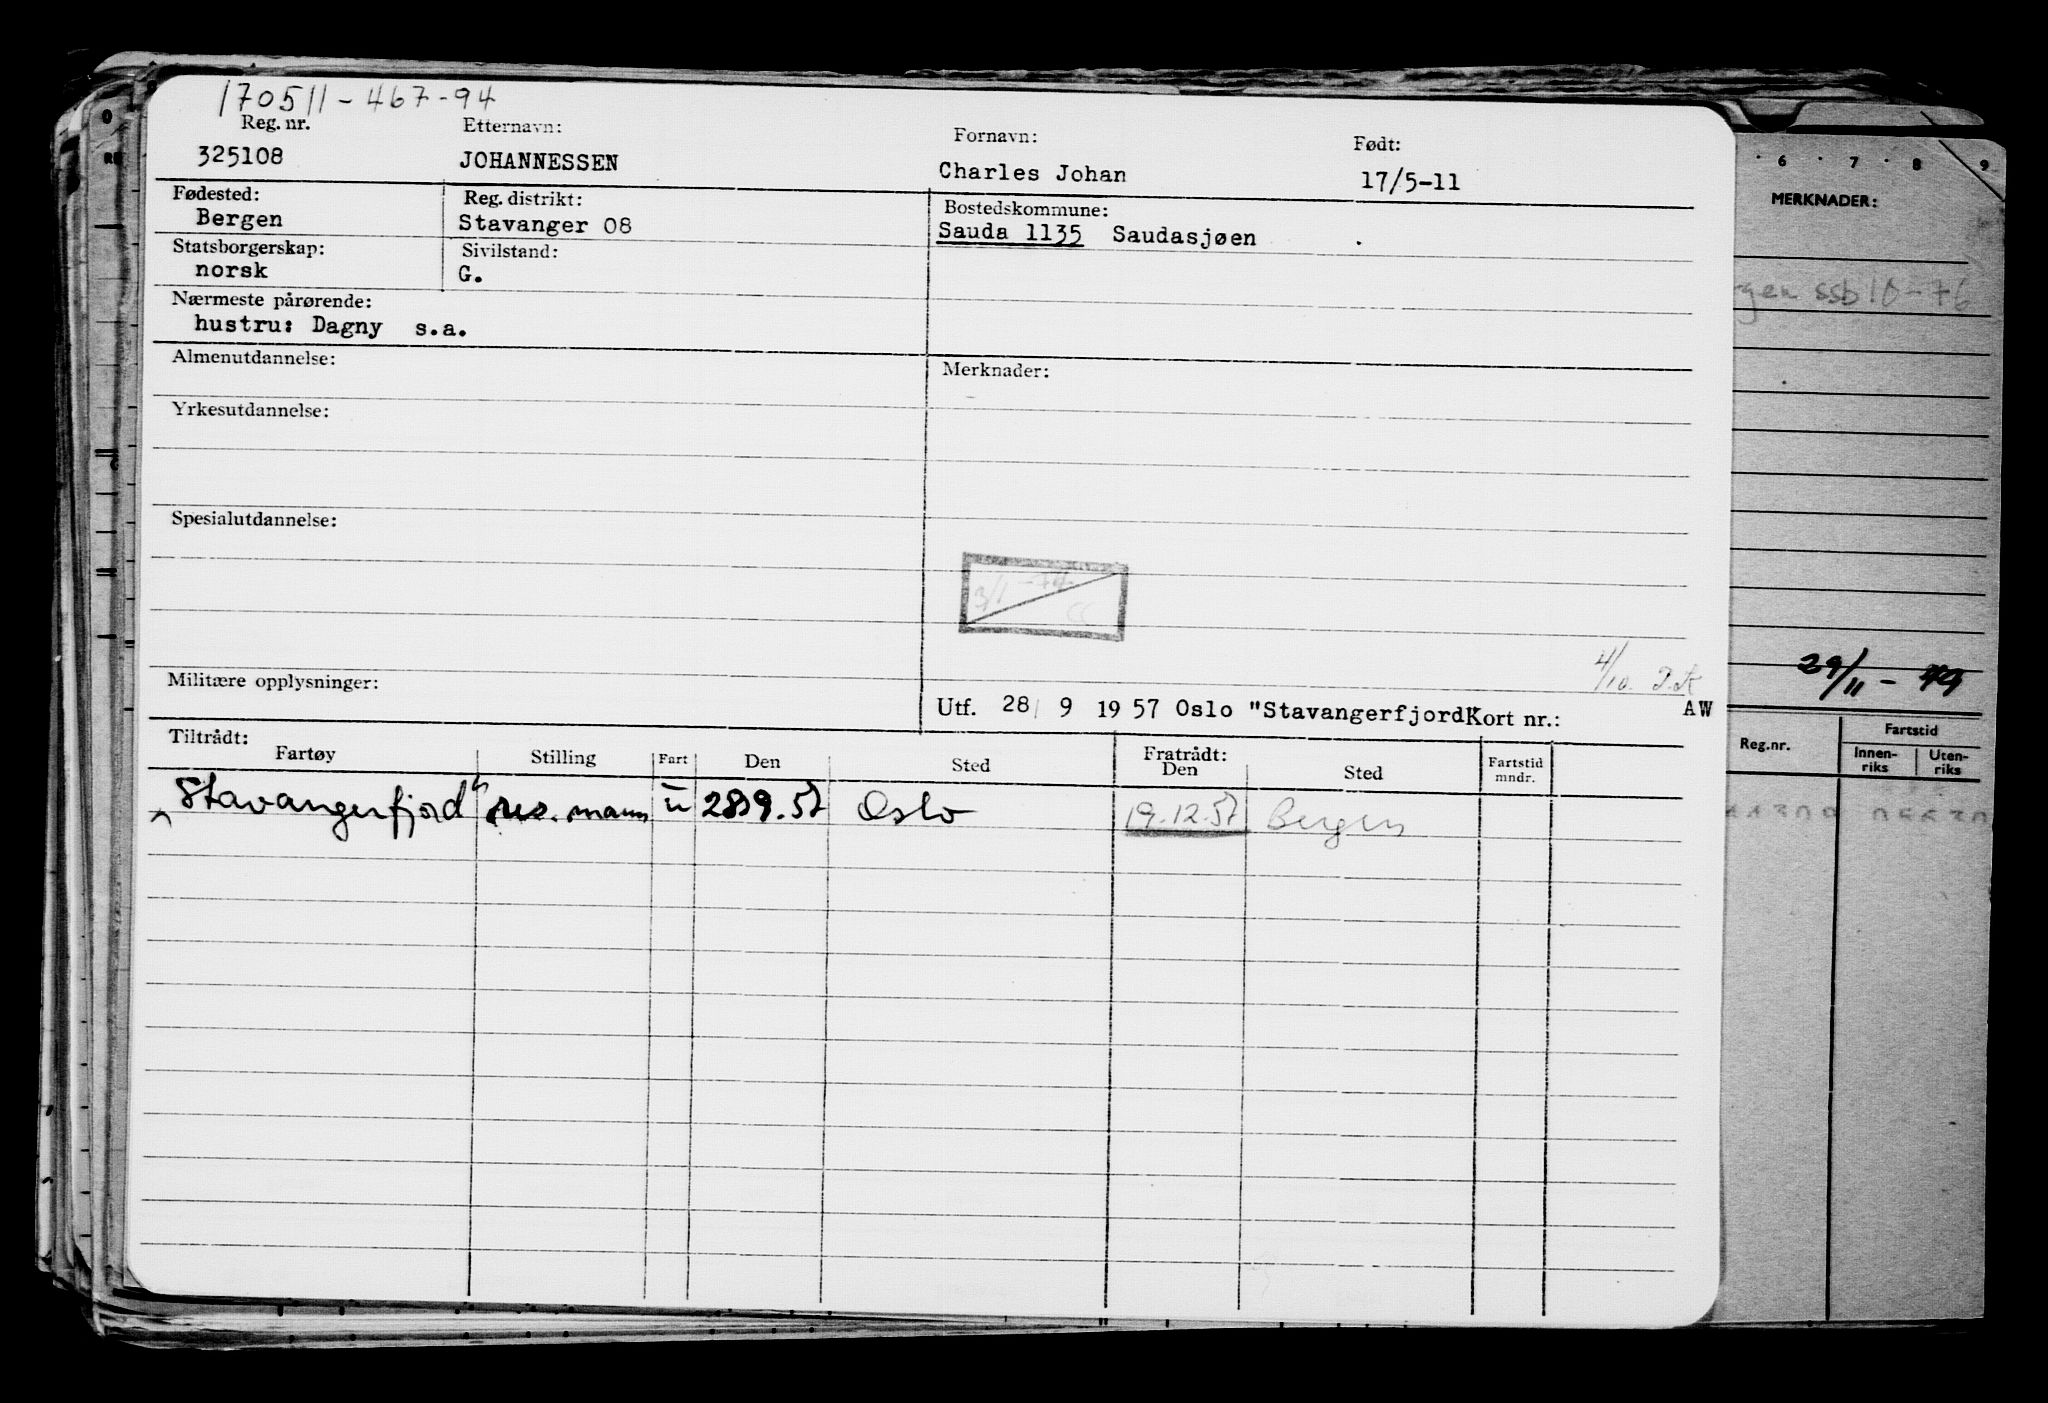 170511-467-94
Reg. nr. Etternavn: Fornavn: Født:
325108 JOHANNESSEN Charles Johan 17/5-11
Fødested: Reg. distrikt: Bostedskommune:
Bergen Stavanger 08 Sauda 1135 Saudasjøen
Statsborgerskap: Sivilstand:
norsk G.
Nærmeste pårørende:
hustru: Dagny s.a.
Almenutdannelse: Merknader:
Yrkesutdannelse:
Spesialutdannelse:
3/1 -74
CC
4/10
Militære opplysninger:
Utf. 28/ 9 19 57 Oslo "Stavangerfjord" Kort nr.: AW
Tiltrådt: Fratrådt:
Fartøy Stilling Fart Den Sted Den Sted Fartstid mndr.
"Stavangerfjord" res. mann u 28/9.57 Oslo 19.12.57 Bergen
6 7 8 9
MERKNADER:
rgen ssb 10-76
29/11-
Reg.nr. Fartstid
Innen-riks Uten-riks